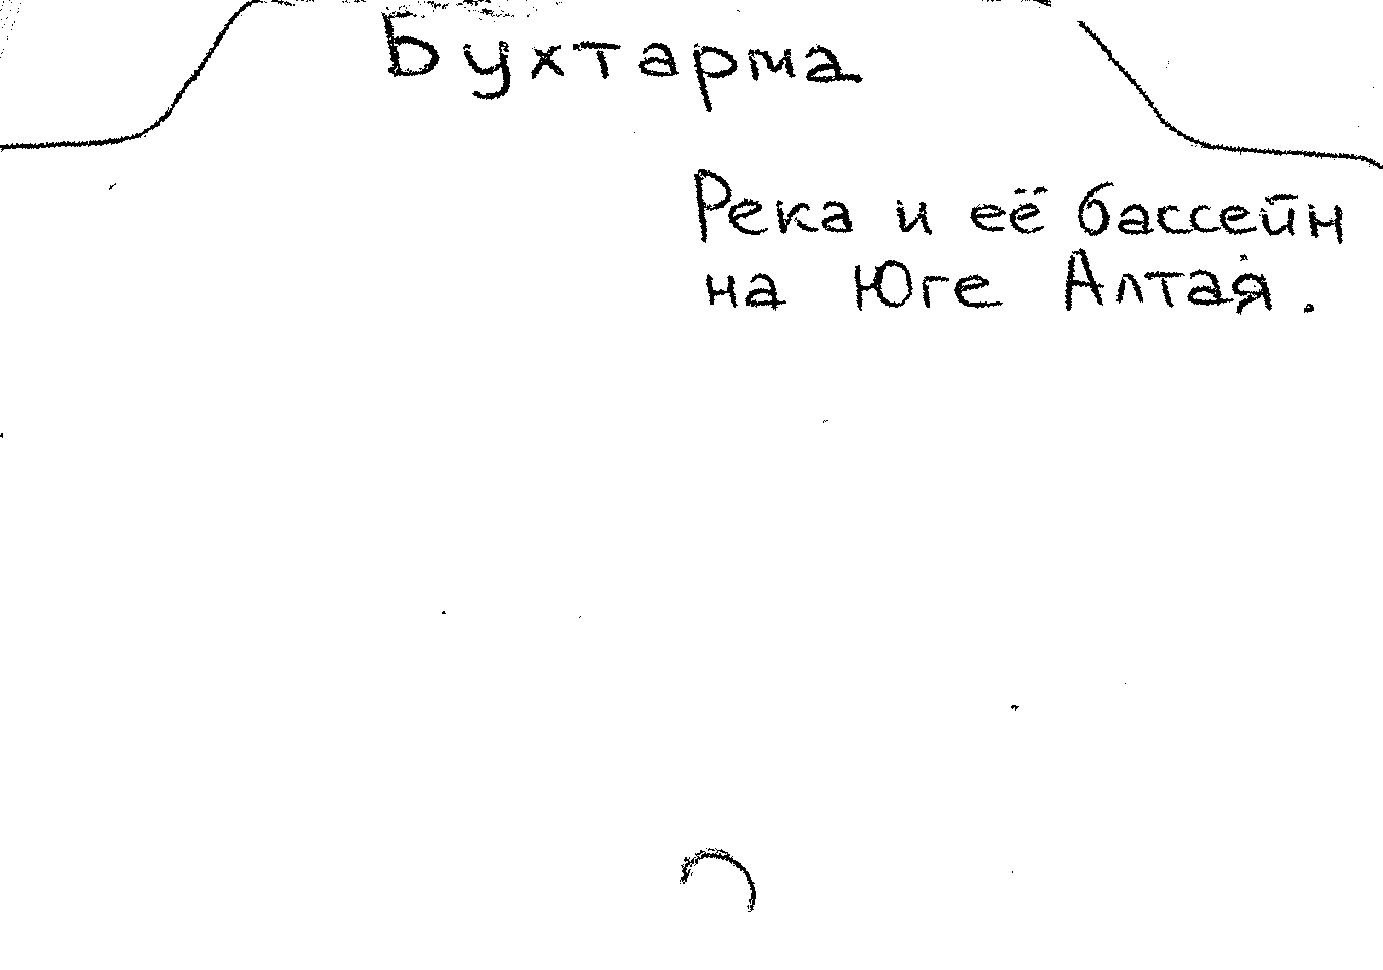 Бухтарма
Река и её бассейн
на Юге Алтая.